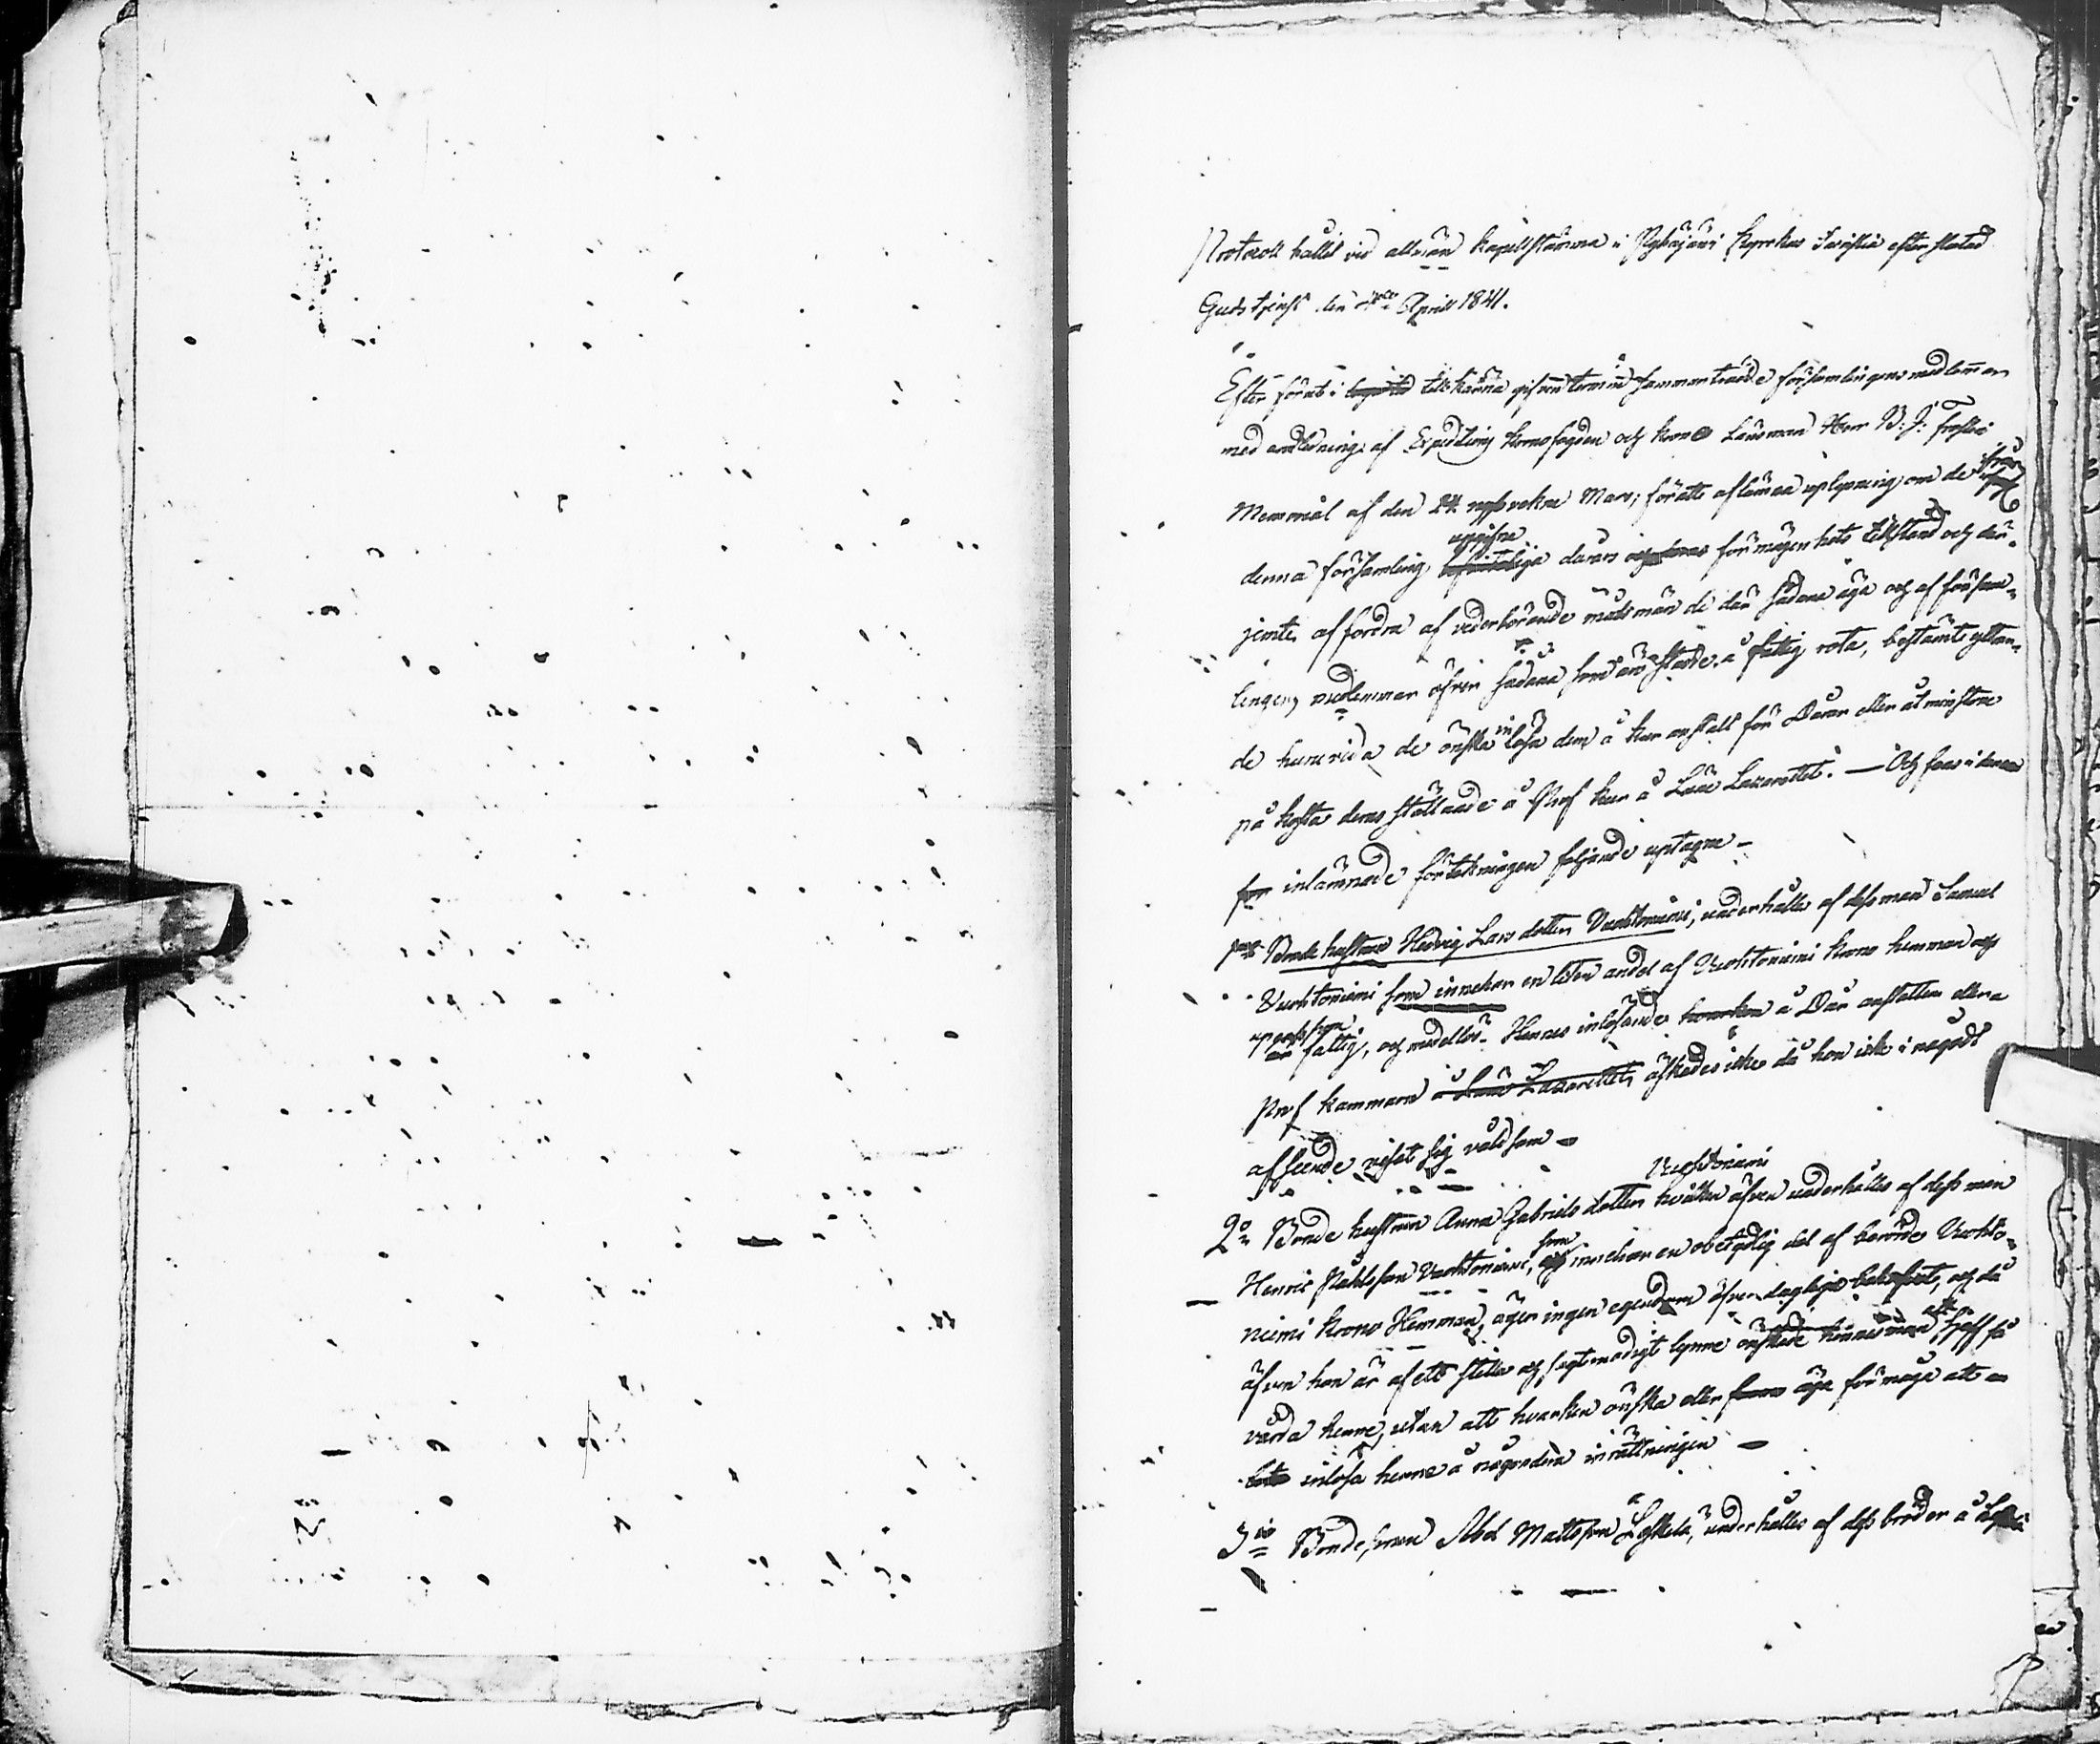 Protocoll hållit vid allmän Kapellstämma i Pyhäjärvi Kyrckas Sacristia efter slutad
Gudstjenst den April 1841.
Efter förut i tillkänna gifven termin sammanträdde församlingens medlemmar
med anledning af Expeditions Kronofogden och Krono Länsman Herr
Memorial af den 24 nystvekne Mars; för att aflämna uplysning om de ifrån
uppgifne
denna församling dårars förmögenhets tillstånd och där-
jemte affordra af vederbörande målsmän de där sådane äga och af försam-
lingens medlemmar öfver sådana som äro å fattig rota, bestämt yttran-
de huruvida de önska inlösa dem å kur anstalt för Dårar eller åtminstone
på kosta deras ställande å Prof kur å Läns Lazarettet. — Och fans i denna
inlämnade förtekningen följande uptagne –
1mo Bonde hustrun Hedvig Lars dotter Vuohtoniemi, underhålles af dess man Samuel
Vuohtoniemi som innehar en liten andel af Vuohtoniemi Krono hemman och
är fattig, och medellös. Hennes inlösande å Dår anstalten eller a
Prof kammare å Läns Lazarettet äskades icke då hon icke i något
afseende visat sig våldsam –
Vuohtoniemi
2o Bonde hustrun Anna Gabriels dotter hvilken äfven underhålles af dess man
Henric Vuohtoniemi, som innehar en obetydlig del af berörde Vuohto-
niemi Krono Hemman, äger ingen egendom öfver dagliga behofvet, och då
äfven hon är af ett stilla och sagtmodigt lynne önskade hennes man att sjelf få
vårda henne, utan att hvarken önska eller äga förmåga att
inlösa henne å någondera inrättningen –
3io Bonde sonen Abel Mattsson Leskelä, underhålles af dess broder å